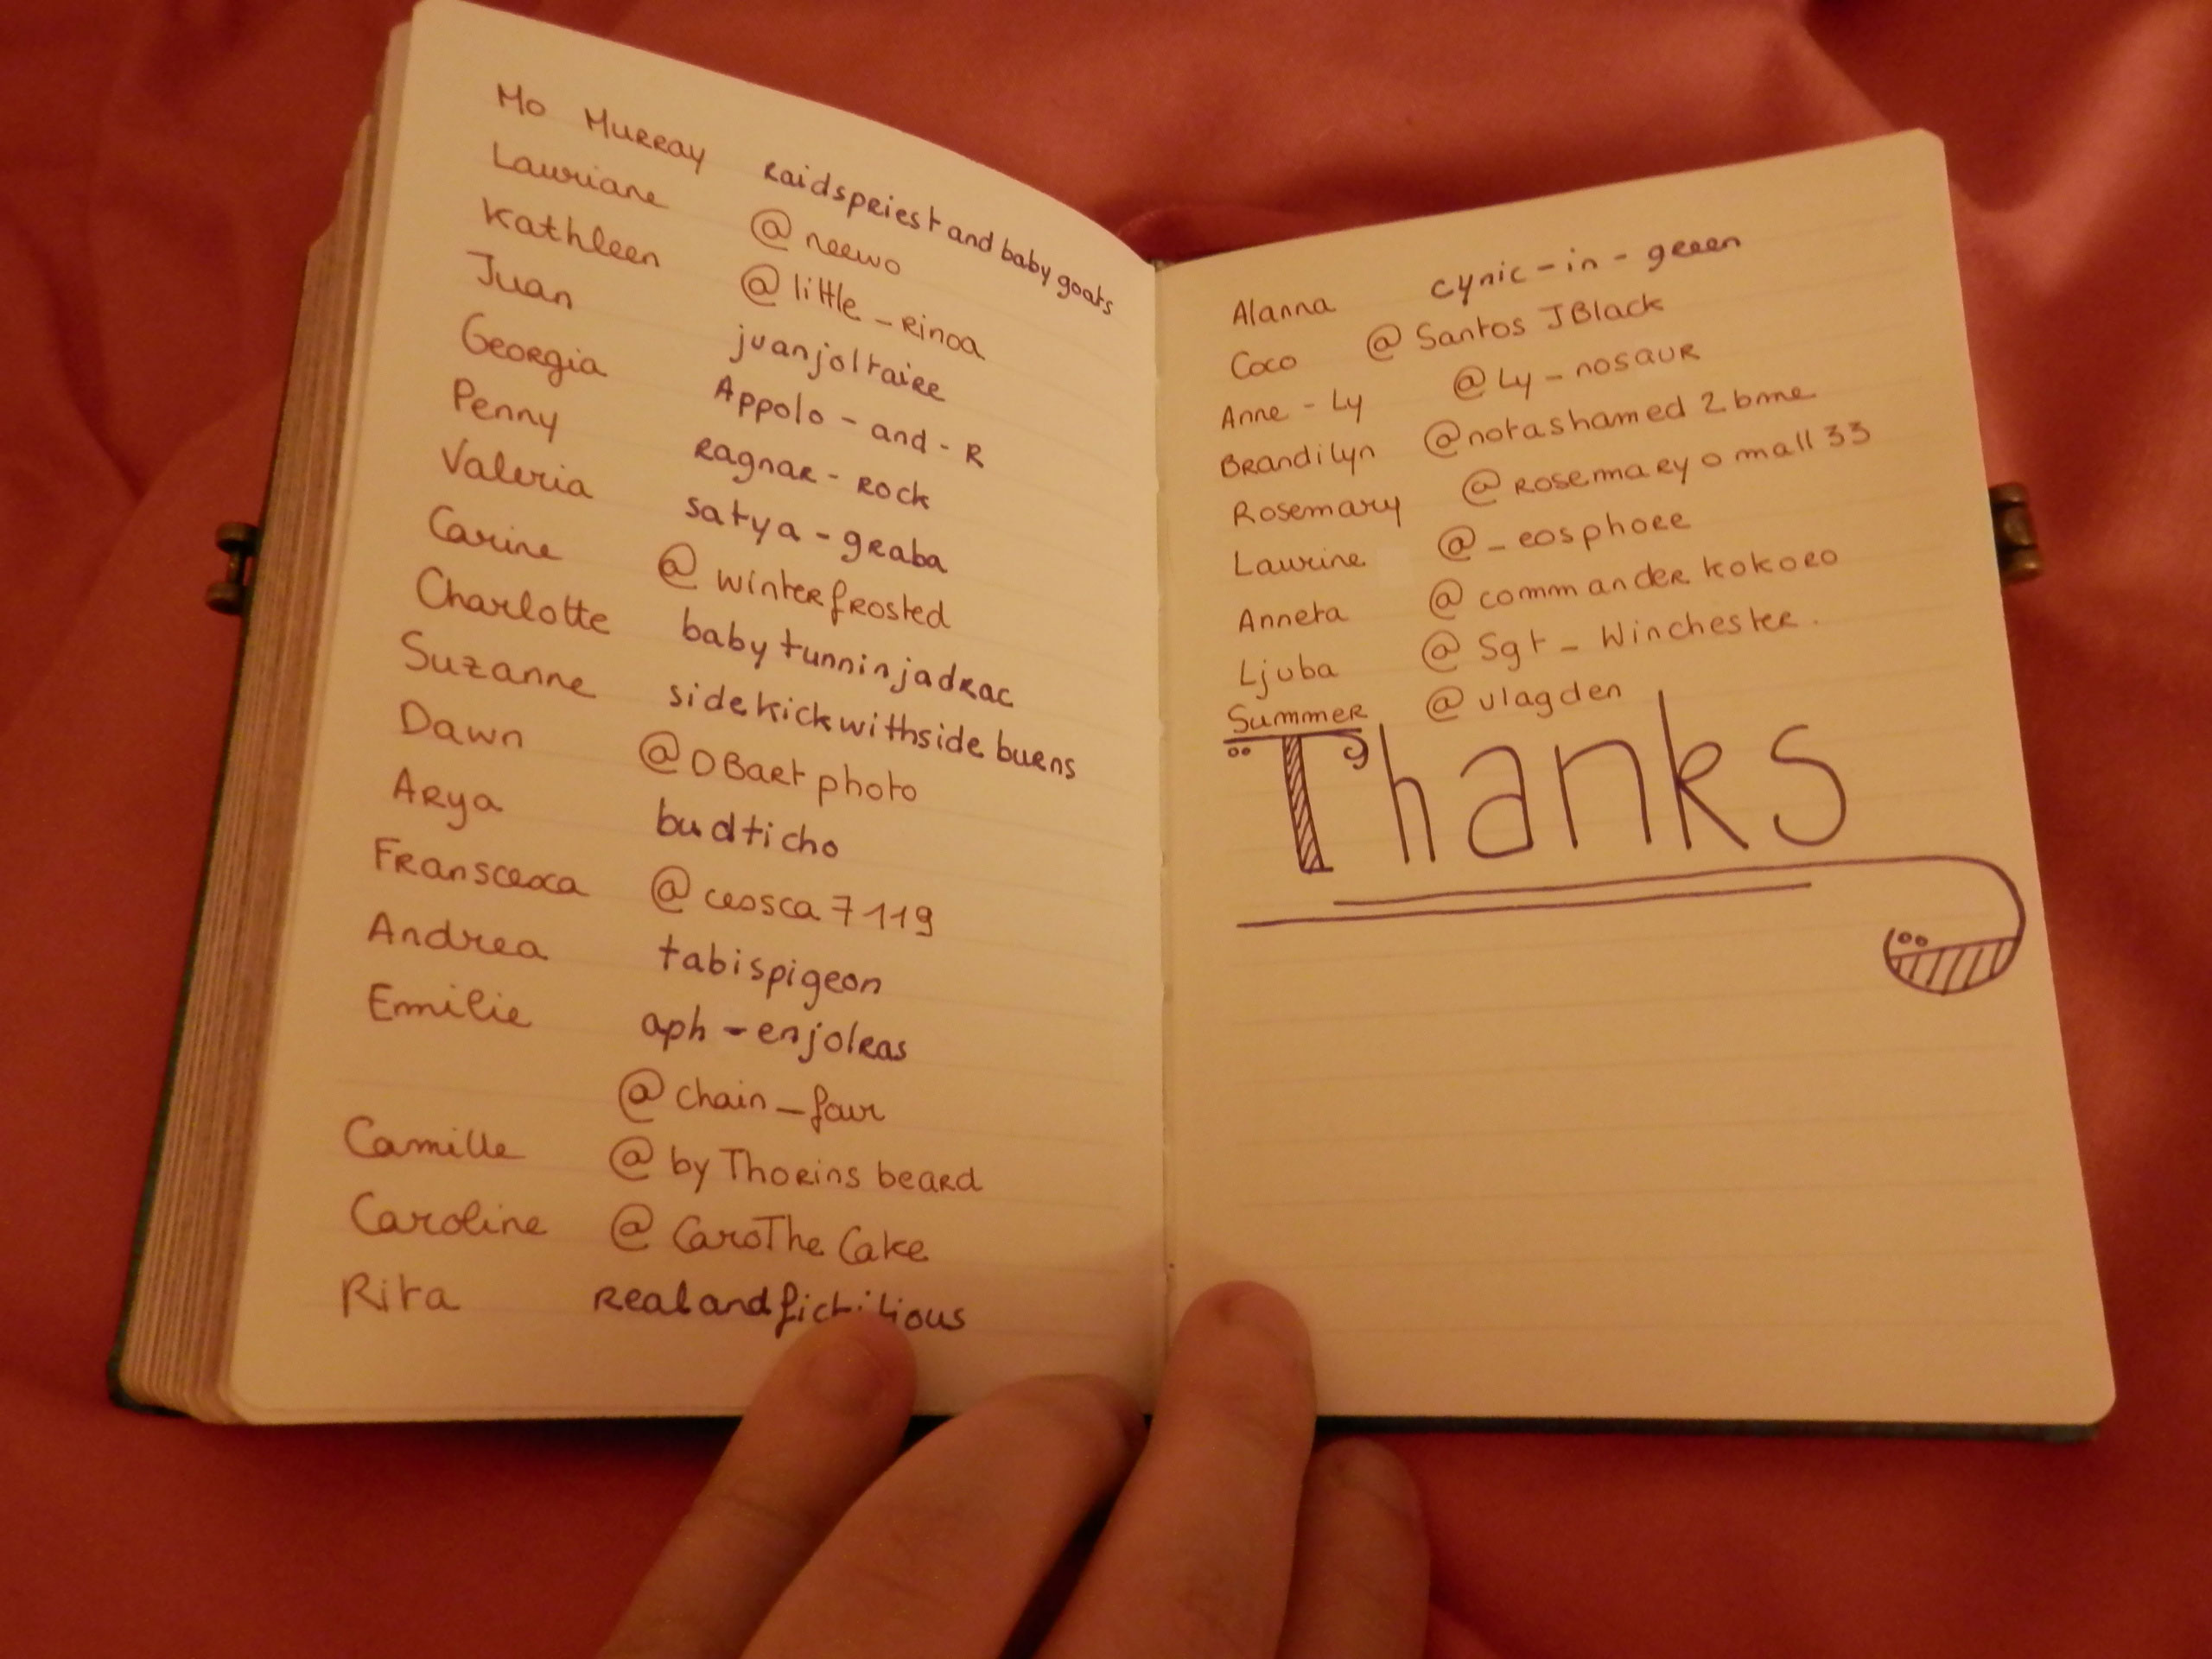 Mo Murray raidspriest and baby goats
Lauriane @neewo
Kathleen @little_rinoa
Juan juanjoltaire
Georgia Appolo-and-R
Penny ragnar-rock
Valeria satya-graba
Carine @winterfrosted
Charlotte babytunninjadrac
Suzanne sidekickwithsideburns
Dawn @DBartphoto
Arya budticho
@ceosca7119
Andrea tabispigeon
Emilie aph-enjolras
@chain_four
Camille @byThorinsbeard
Caroline @CaroTheCake
Rita realandfictitious
Alanna cynic-in-green
Coco @SantosJBlack
Anne-Ly @Ly_nosaur
Brandilyn @notashamed2bme
Rosemary @rosemaryomall33
Laurine @_eosphore
Anneta @commanderkokoro
Ljuba @Sgt_Winchester.
Summer @vlagden
Thanks